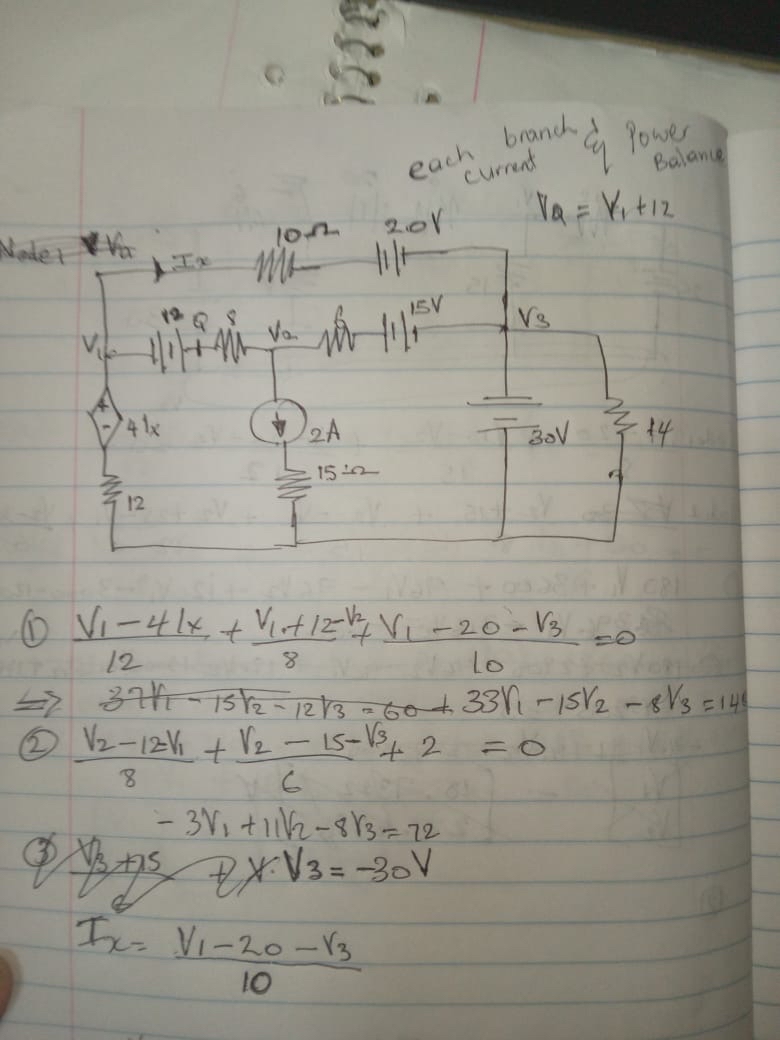 each branch & Power
current Eq Balance
Va = V1 + 12
Node 1 Va
Ix 10Ω 20V
V1 12 Q 8 V2 6 15V V3
+
-
4Ix 2A 30V 14
12 15Ω
① V1 - 4Ix / 12 + V1 + 12 - V2 / 8 + V1 - 20 - V3 / 10 = 0
=> 37V1 - 15V2 - 12V3 = 60 + 33V1 - 15V2 - 8V3 = 14
② V2 - 12 - V1 / 8 + V2 - 15 - V3 / 6 + 2 = 0
- 3V1 + 11V2 - 8V3 = 72
③ V3 + 15 / 6 + V3 = -30V
Ix = V1 - 20 - V3 / 10